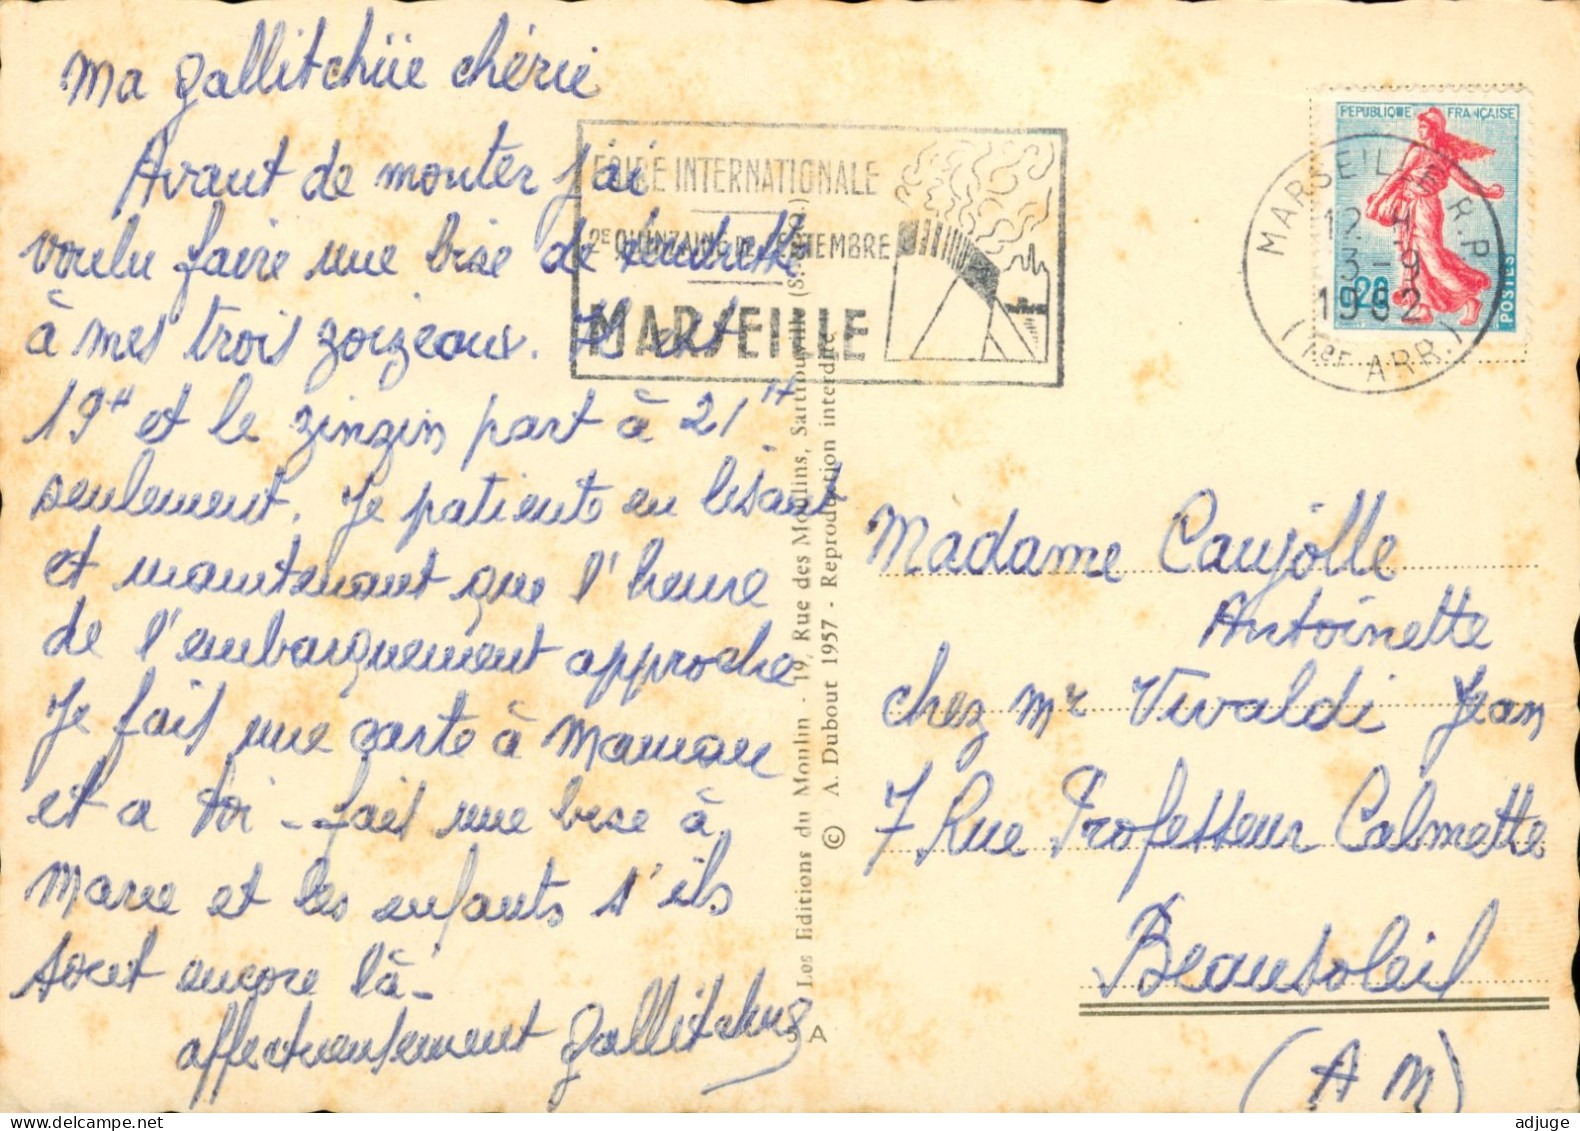 Ma Gallitchüe chérie
Avant de monter j'ai
voulu faire une bise de
à mes trois zoizeaux. Il est
19H et le zinzin part à 21H
seulement. Je patiente en lisant
et maintenant que l'heure
de l'embarquement approche
Je fais une carte à Maman
et a toi - fait une bise à
Marie et les enfants s'ils
sont encore là -
affectueusement Gallitchus
FOIRE INTERNATIONALE
2E QUINZAINE DE SEPTEMBRE
MARSEILLE
REPUBLIQUE FRANÇAISE
0,20
POSTES
MARSEILLE R.P.
12 H
3 - 9
1962
(1er ARR.)
Les Editions du Moulin - 19, Rue des Moulins, Sartrouville (S.-&-O.)
© A. Dubout 1957 - Reproduction interdite
5 A
Madame Caujolle
Antoinette
chez Mr Vivaldi Jean
7 Rue Professeur Calmette
Beausoleil
(A M)
www.delcampe.net
adjuge